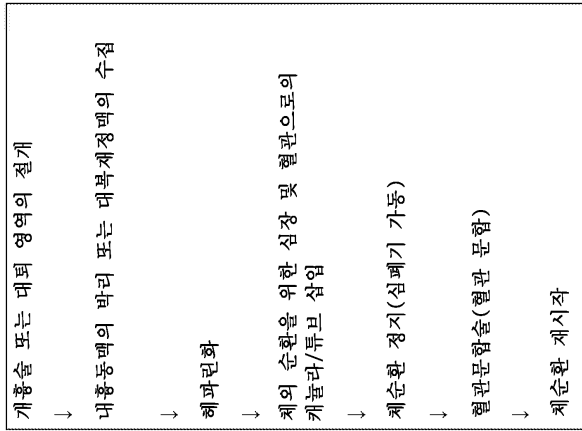 개흉술 또는 대퇴 영역의 절개
↓
내흉동맥의 박리 또는 대복재정맥의 수집
↓
헤파린화
↓
체외 순환을 위한 심장 및 혈관으로의
캐눌라/튜브 삽입
↓
체순환 정지(심폐기 가동)
↓
혈관문합술(혈관 문합)
↓
체순환 재시작